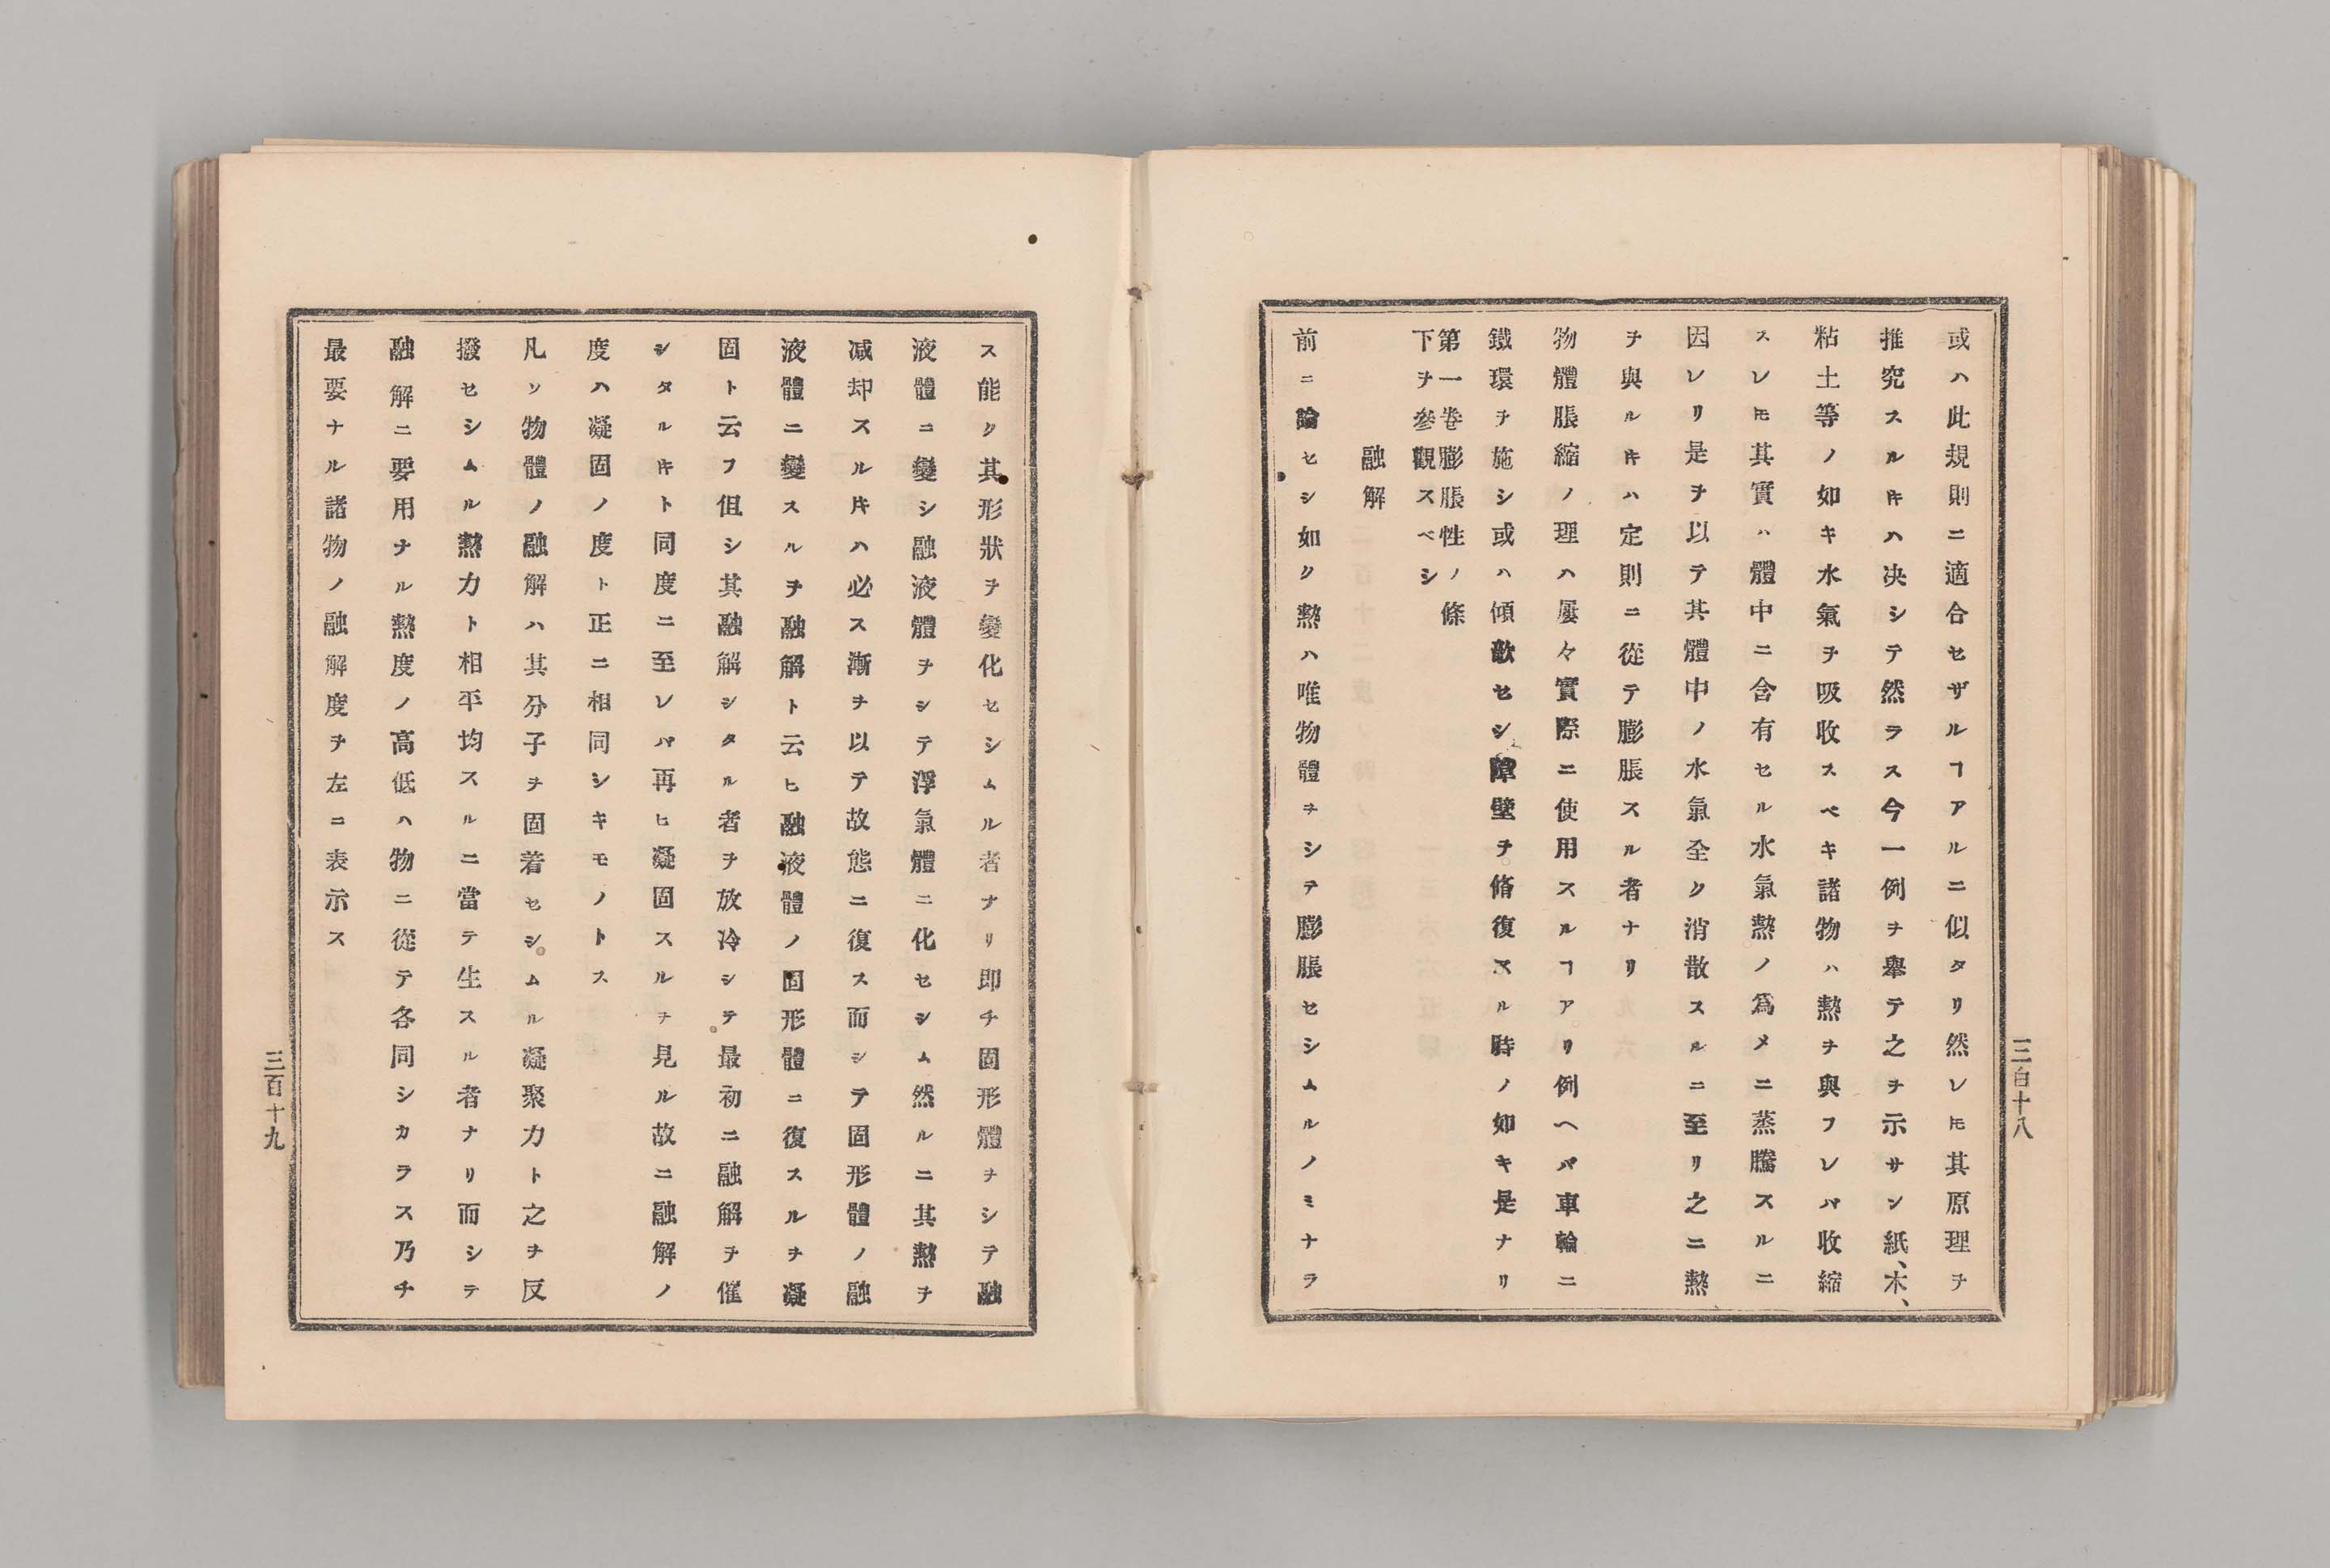 或ハ此規則ニ適合セザルヿアルニ似タリ然レ𪜈其原理ヲ
推究スルキハ决シテ然ラス今一例ヲ舉テ之ヲ示サン紙、木、
粘土等ノ如キ水氣ヲ吸收スベキ諸物ハ熱ヲ與フレバ收縮
スレ𪜈其實ハ體中ニ含有セル水氣熱ノ爲メニ蒸騰スルニ
因レリ是ヲ以テ其體中ノ水氣全ク消散スルニ至リ之ニ熱
ヲ與ルキハ定則ニ從テ膨脹スル者ナリ
物體脹縮ノ理ハ屢々實際ニ使用スルヿアリ例ヘバ車輪ニ
鐵環ヲ施シ或ハ傾欹セシ障壁ヲ脩復スル時ノ如キ是ナリ
第一卷膨脹性ノ條
下ヲ參觀スベシ
融解
前ニ論セシ如ク熱ハ唯物體ヲシテ膨脹セシムルノミナラ
三百十八
ス能ク其形狀ヲ變化セシムル者ナリ即チ固形體ヲシテ融
液體ニ變シ融液體ヲシテ浮氣體ニ化セシム然ルニ其熱ヲ
减却スルキハ必ス漸ヲ以テ故態ニ復ス而シテ固形體ノ融
液體ニ變スルヲ融解ト云ヒ融液體ノ固形體ニ復スルヲ凝
固ト云フ但シ其融解シタル者ヲ放冷シテ最初ニ融解ヲ催
シタルキト同度ニ至レバ再ヒ凝固スルヲ見ル故ニ融解ノ
度ハ凝固ノ度ト正ニ相同シキモノトス
凡ソ物體ノ融解ハ其分子ヲ固着セシムル凝聚力ト之ヲ反
撥セシムル熱力ト相平均スルニ當テ生スル者ナリ而シテ
融解ニ要用ナル熱度ノ高低ハ物ニ從テ各同シカラス乃チ
最要ナル諸物ノ融解度ヲ左ニ表示ス
三百十九